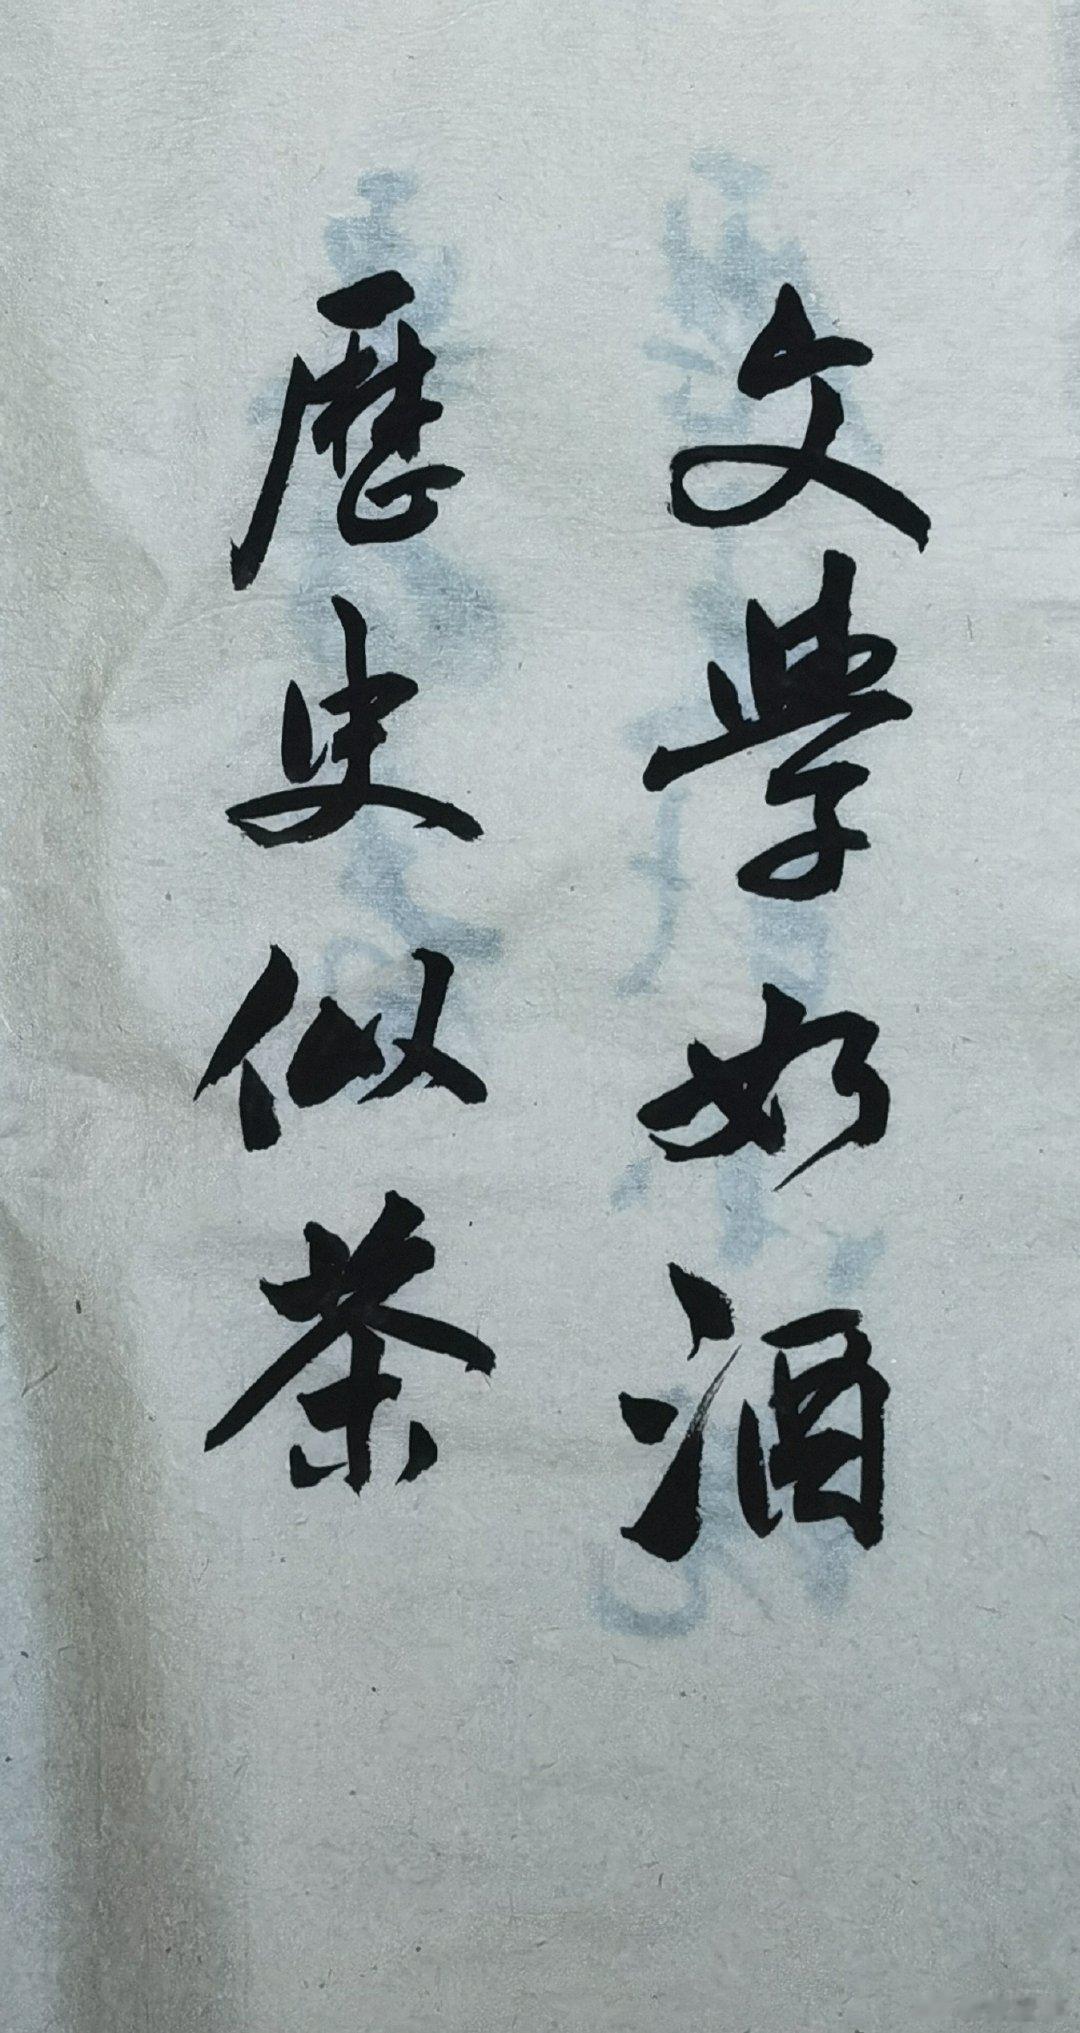 文學如酒
歷史似茶